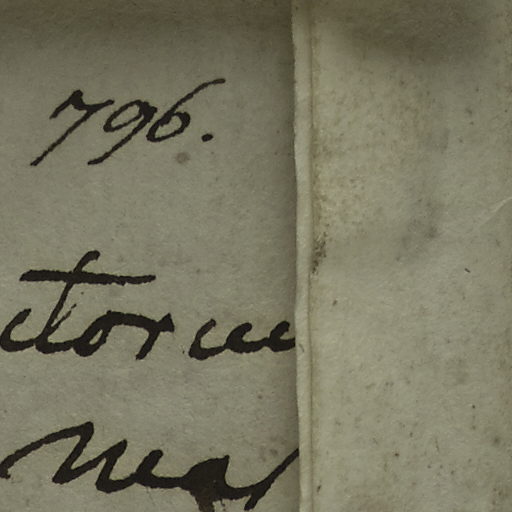 796.
ctorum
meas